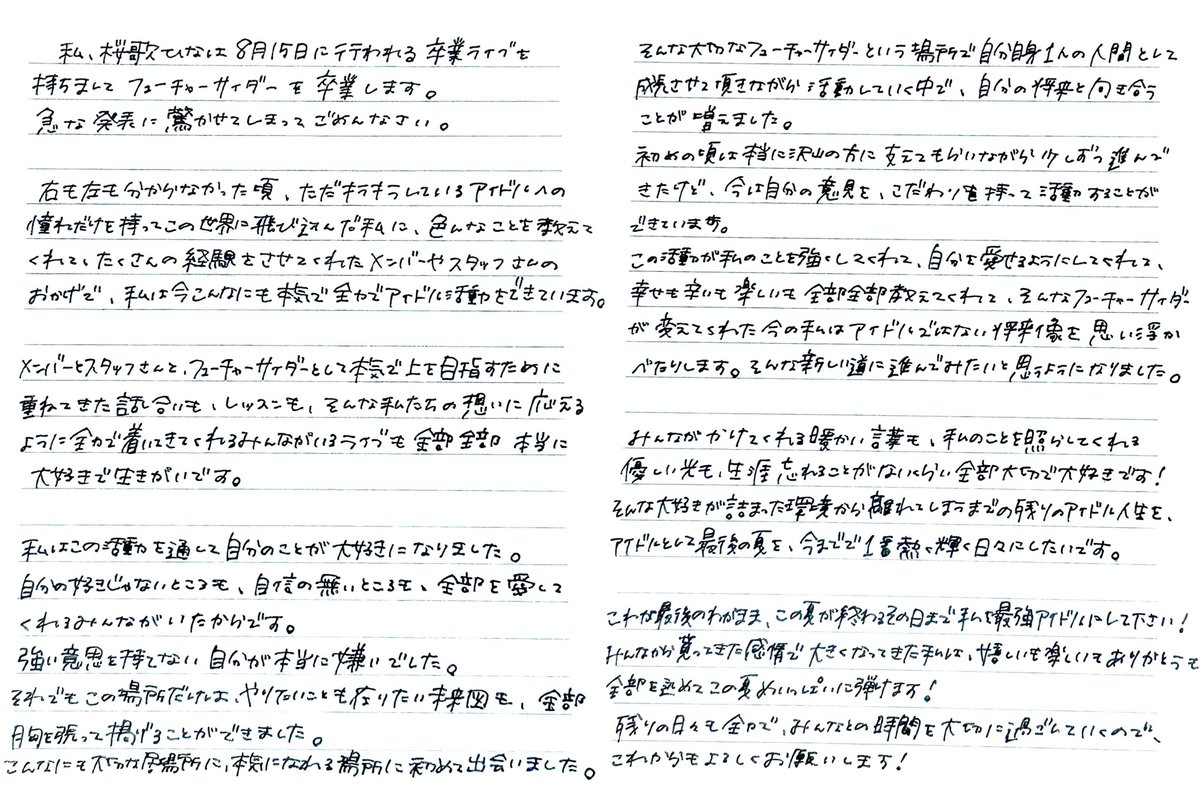 私、桜歌ひなは8月15日に行われる卒業ライブを
持ちまして フューチャーサイダーを卒業します。
急な発表に驚かせてしまってごめんなさい。
右も左も分からなかった頃、ただキラキラしているアイドルへの
憧れだけを持ってこの世界に飛び込んだ私に、色んなことを教えて
くれて、たくさんの経験をさせてくれたメンバーやスタッフさんの
おかげで、私は今こんなにも本気で全力でアイドル活動をできています。
メンバーとスタッフさんと、フューチャーサイダーとして本気で上を目指すために
重ねてきた話し合いも、レッスンも、そんな私たちの想いに応える
ように全力で着いてきてくれるみんながいるライブも全部全部 本当に
大好きで生きがいです。
私はこの活動を通して自分のことが大好きになりました。
自分の好きじゃないところも、自信の無いところも、全部を愛して
くれるみんながいたからです。
強い意思を持てない自分が本当に嫌いでした。
それでもこの場所だけは、やりたいことも在りたい未来図も、全部
胸を張って掲げることができました。
こんなにも大切な居場所に、本気になれる場所に初めて出会いました。
そんな大切なフューチャーサイダーという場所で自分自身1人の人間として
成長させて頂きながら活動していく中で、自分の将来と向き合う
ことが増えました。
初めの頃は本当に沢山の方に支えてもらいながら少しずつ進んで
きたけど、今は自分の意見を、こだわりを持って活動することが
できています。
この活動が私のことを強くしてくれて、自分を愛せるようにしてくれて、
幸せも辛いも楽しいも全部全部教えてくれて、そんなフューチャーサイダー
が変えてくれた今の私はアイドルではない将来像を思い浮か
べたりします。そんな新しい道に進んでみたいと思うようになりました。
みんながかけてくれる暖かい言葉も、私のことを照らしてくれる
優しい光も、生涯忘れることがないくらい全部大切で大好きです!
そんな大好きが詰まった環境から離れてしまうまでの残りのアイドル人生を、
アイドルとして最後の夏を、今までで1番熱く輝く日々にしたいです。
これが最後のわがまま、この夏が終わるその日まで私を最強アイドルにして下さい!
みんなから貰ってきた感情で大きくなってきた私は、嬉しいも楽しいもありがとうも
全部を込めてこの夏めいっぱいに弾けます!
残りの日々も全力で、みんなとの時間を大切に過ごしていくので、
これからもよろしくお願いします!